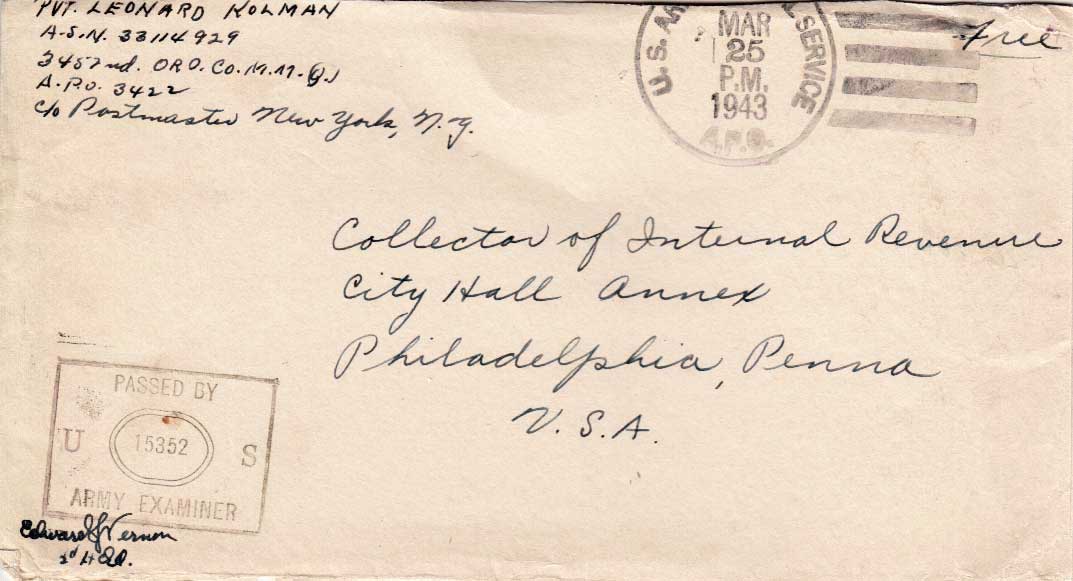 PVT. LEONARD KOLMAN
A.S.N. 33114929
3452nd. ORD. CO. M.M. (Q)
A.P.O. 3422
c/o Postmaster New York, N.Y.
U.S. AR L SERVICE
MAR
25
P.M.
1943
A.P.O.
Free
Collector of Internal Revenue
City Hall Annex
Philadelphia, Penna
U.S.A.
PASSED BY
U 15352 S
ARMY EXAMINER
Edward J Vernon